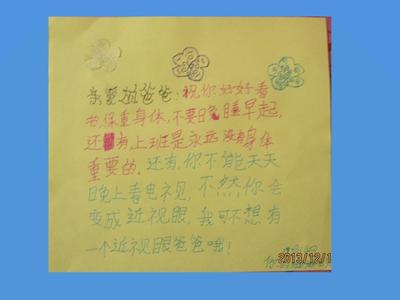 亲爱的爸爸:祝你好好看
书,保重身体,不要晚睡早起,
还有,上班是永远没有身体
重要的.还有,你不能天天
晚上看电视,不然你会
变成近视眼,我可不想有
一个近视眼爸爸哦!
你的
2013/12/1